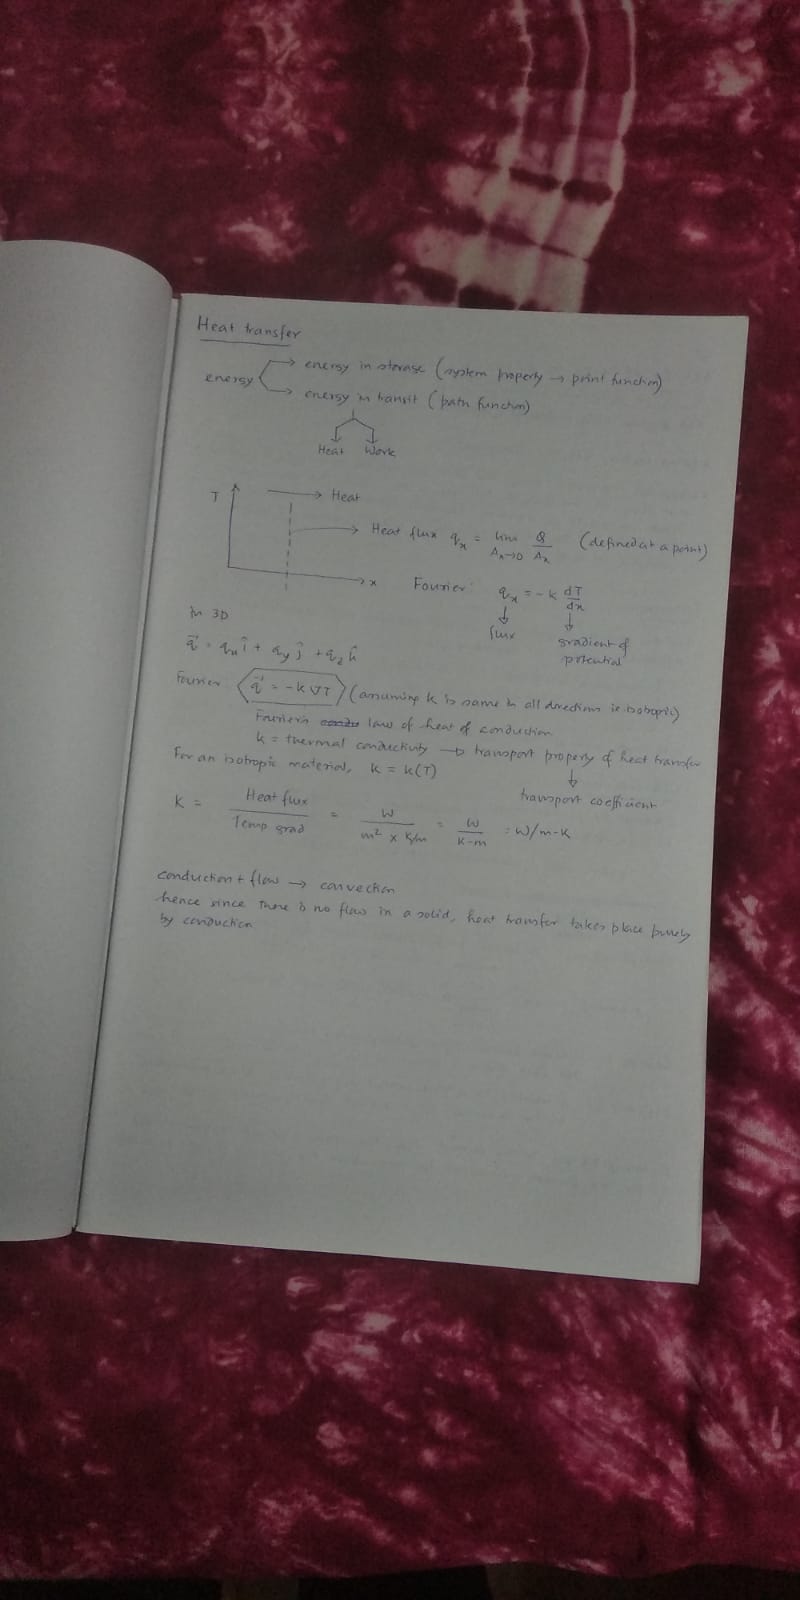 Heat transfer
energy → energy in storage (system property → point function)
→ energy in transit (path function)
Heat Work
T → Heat
→ Heat flux qx = lim Ax→0 Q/Ax (defined at a point)
x Fourier: qx = -k dT/dx
flux gradient of potential
in 3D
q⃗ = qx î + qy ĵ + qz k̂
Fourier: q⃗ = -k∇T (assuming k is same in all directions ie isotropic)
Fourier's law of heat of conduction
k = thermal conductivity → transport property of heat transfer
For an isotropic material, k = k(T)
transport coefficient
K = Heat flux / Temp grad = W / m² x K/m = W / K-m = W/m-K
conduction + flow → convection
hence since there is no flow in a solid, heat transfer takes place purely
by conduction